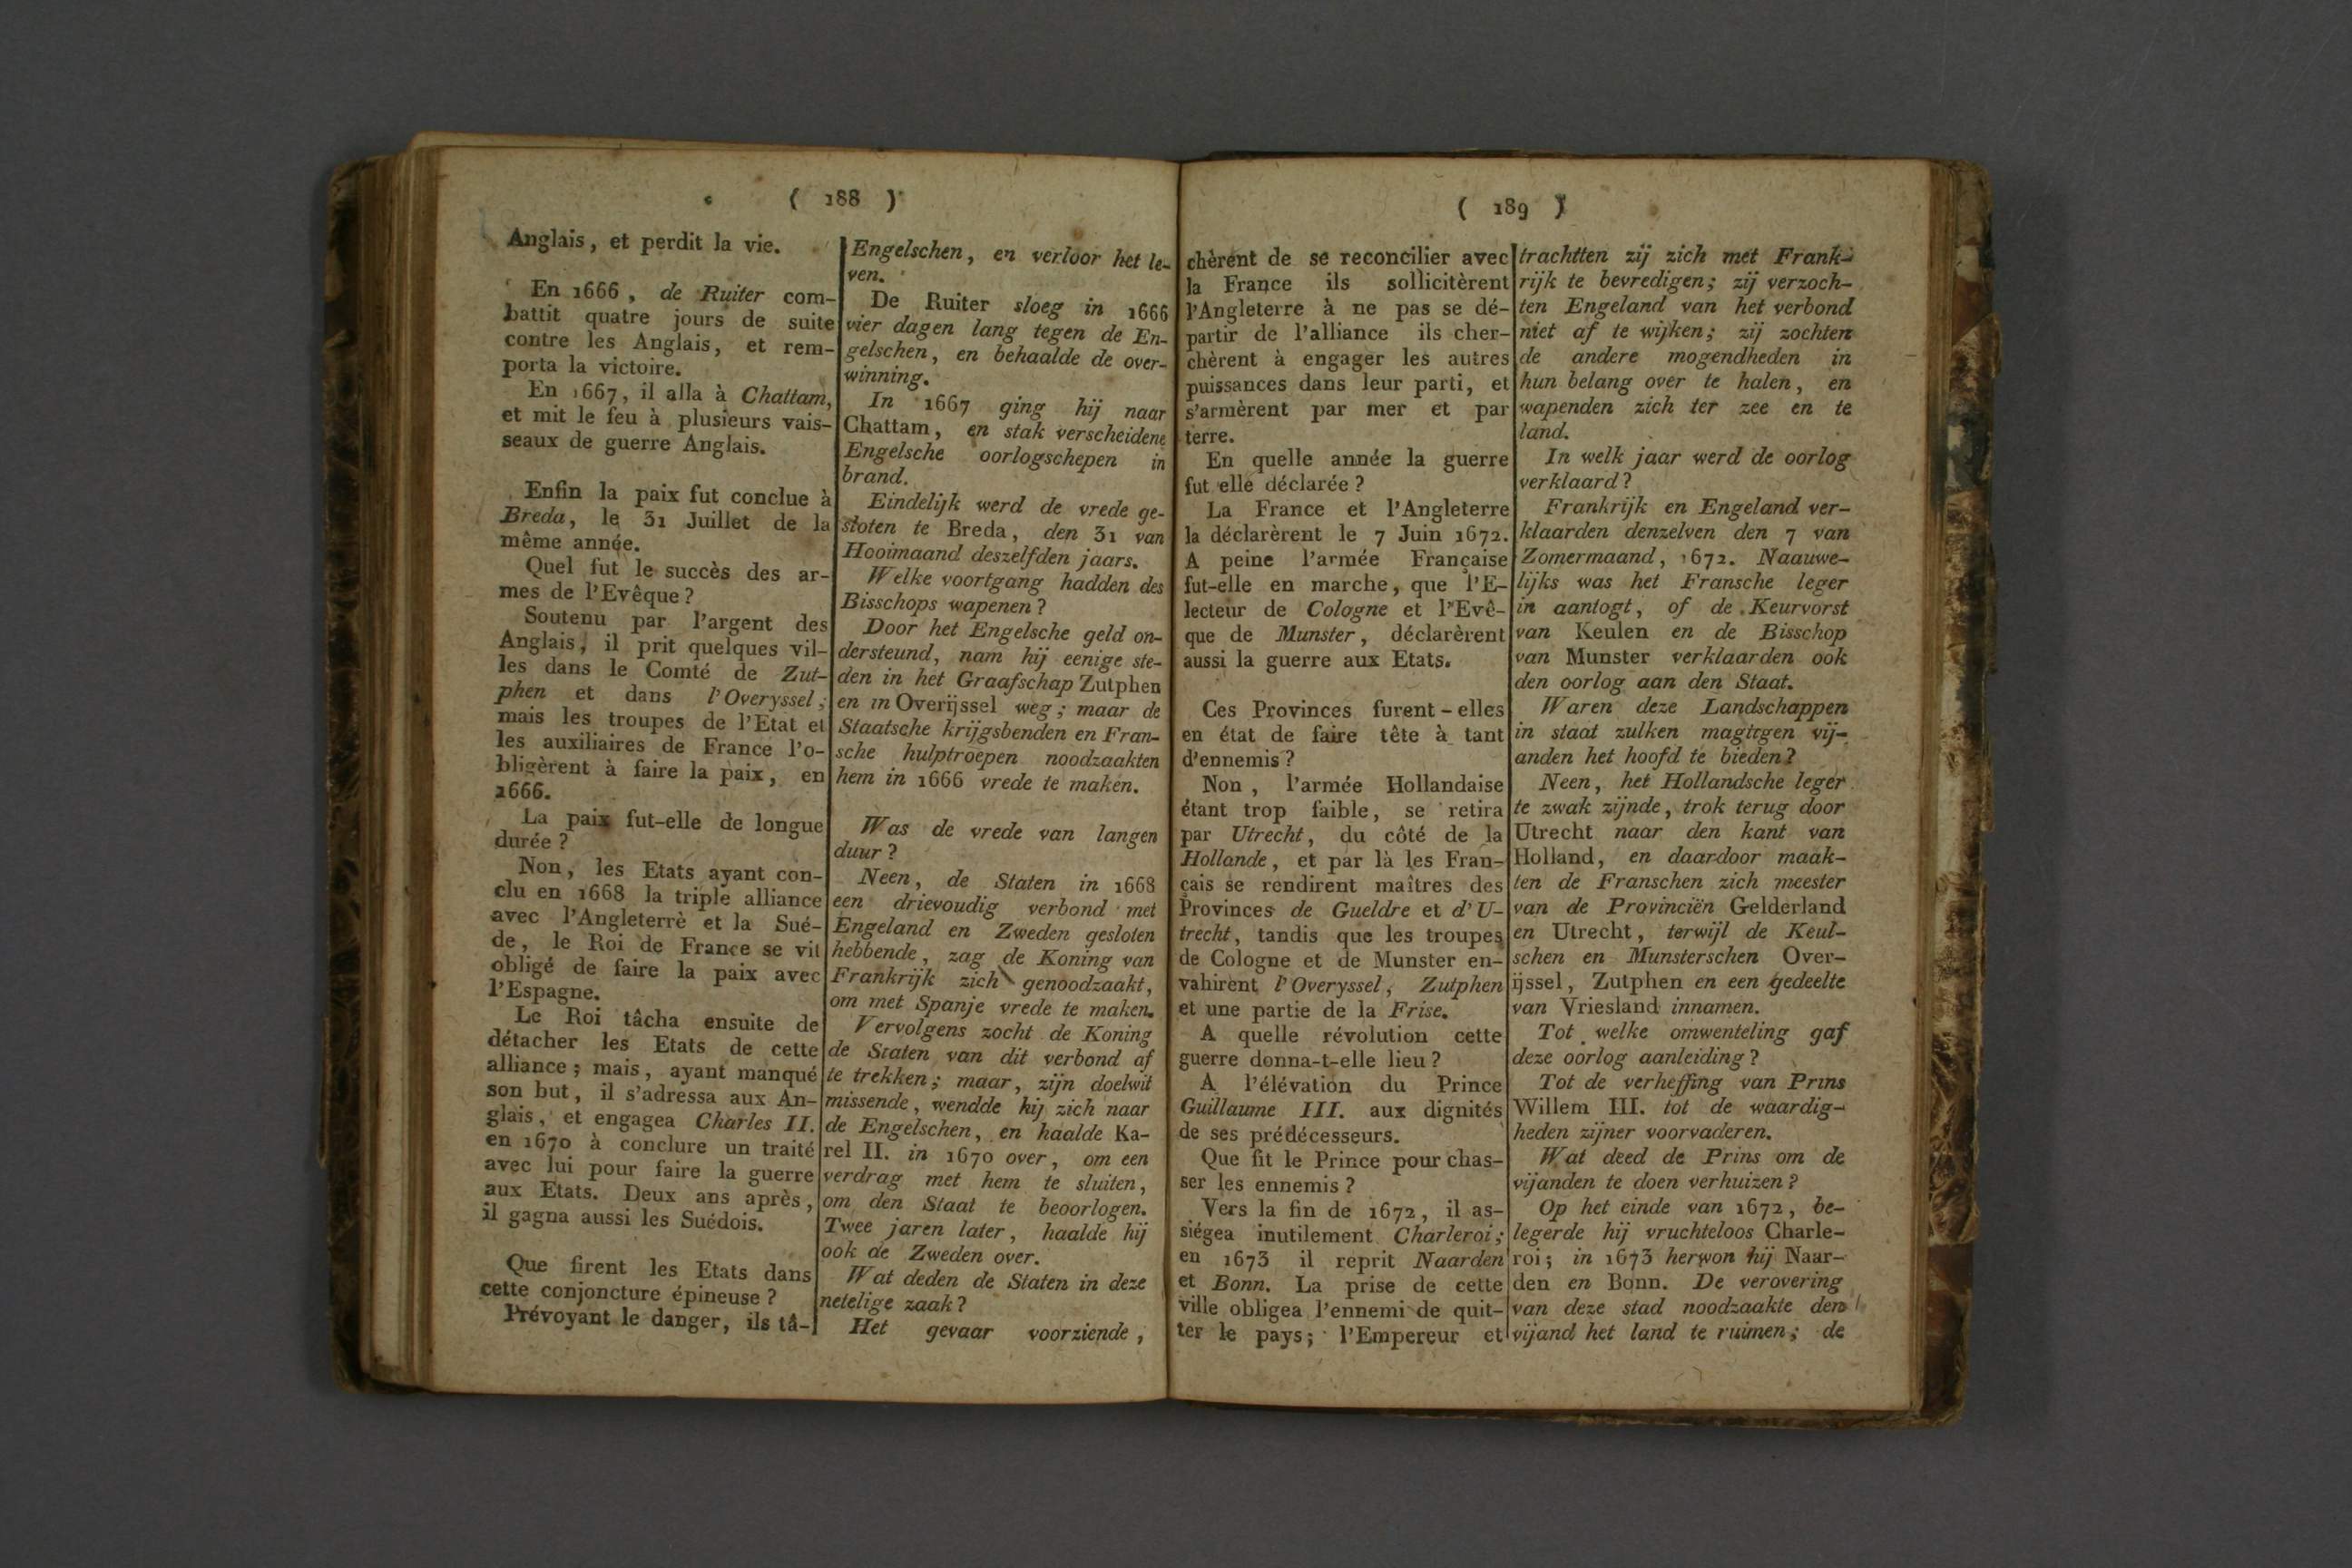 ( 188 )
Anglais, et perdit la vie.
En 1666, de Ruiter com-
battit quatre jours de suite
contre les Anglais, et rem-
porta la victoire.
En 1667, il alla à Chattam,
et mit le feu à plusieurs vais-
seaux de guerre Anglais.
Enfin la paix fut conclue à
Breda, le 31 Juillet de la
même année.
Quel fut le succès des ar-
mes de l'Evêque?
Soutenu par l'argent des
Anglais, il prit quelques vil-
les dans le Comté de Zut-
phen et dans l'Overyssel;
mais les troupes de l'Etat et
les auxiliaires de France l'o-
bligèrent à faire la paix, en
1666.
La paix fut-elle de longue
durée?
Non, les Etats ayant con-
clu en 1668 la triple alliance
avec l'Angleterrè et la Sué-
de, le Roi de France se vit
obligé de faire la paix avec
l'Espagne.
Le Roi tâcha ensuite de
détacher les Etats de cette
alliance; mais, ayant manqué
son but, il s'adressa aux An-
glais, et engagea Charles II.
en 1670 à conclure un traité
avec lui pour faire la guerre
aux Etats. Deux ans après,
il gagna aussi les Suédois.
Que firent les Etats dans
cette conjoncture épineuse?
Prévoyant le danger, ils tâ-
Engelschen, en verloor het le-
ven.
De Ruiter sloeg in 1666
vier dagen lang tegen de En-
gelschen, en behaalde de over-
winning.
In 1667 ging hij naar
Chattam, en stak verscheidene
Engelsche oorlogschepen in
brand.
Eindelijk werd de vrede ge-
sloten te Breda, den 31 van
Hooimaand deszelfden jaars.
Welke voortgang hadden des
Bisschops wapenen?
Door het Engelsche geld on-
dersteund, nam hij eenige ste-
den in het Graafschap Zutphen
en in Overijssel weg; maar de
Staatsche krijgsbenden en Fran-
sche hulptroepen noodzaakten
hem in 1666 vrede te maken.
Was de vrede van langen
duur?
Neen, de Staten in 1668
een drievoudig verbond met
Engeland en Zweden gesloten
hebbende, zag de Koning van
Frankrijk zich genoodzaakt,
om met Spanje vrede te maken.
Vervolgens zocht de Koning
de Staten van dit verbond af
te trekken; maar, zijn doelwit
missende, wendde hij zich naar
de Engelschen, en haalde Ka-
rel II. in 1670 over, om een
verdrag met hem te sluiten,
om den Staat te beoorlogen.
Twee jaren later, haalde hij
ook de Zweden over.
Wat deden de Staten in deze
netelige zaak?
Het gevaar voorziende,
( 189 )
chèrent de se reconcilier avec
la France ils sollicitèrent
l'Angleterre à ne pas se dé-
partir de l'alliance ils cher-
chèrent à engager les autres
puissances dans leur parti, et
s'armèrent par mer et par
terre.
En quelle année la guerre
fut elle déclarée?
La France et l'Angleterre
la déclarèrent le 7 Juin 1672.
A peine l'armée Française
fut-elle en marche, que l'E-
lecteur de Cologne et l'Evê-
que de Munster, déclarèrent
aussi la guerre aux Etats.
Ces Provinces furent-elles
en état de faire tête à tant
d'ennemis?
Non, l'armée Hollandaise
étant trop faible, se retira
par Utrecht, du côté de la
Hollande, et par là les Fran-
çais se rendirent maîtres des
Provinces de Gueldre et d'U-
trecht, tandis que les troupes
de Cologne et de Munster en-
vahirent l'Overyssel, Zutphen
et une partie de la Frise.
A quelle révolution cette
guerre donna-t-elle lieu?
A l'élévation du Prince
Guillaume III. aux dignités
de ses prédécesseurs.
Que fit le Prince pour chas-
ser les ennemis?
Vers la fin de 1672, il as-
siégea inutilement Charleroi;
en 1673 il reprit Naarden
et Bonn. La prise de cette
ville obligea l'ennemi de quit-
ter le pays; l'Empereur et
trachtten zij zich met Frank-
rijk te bevredigen; zij verzoch-
ten Engeland van het verbond
niet af te wijken; zij zochten
de andere mogendheden in
hun belang over te halen, en
wapenden zich ter zee en te
land.
In welk jaar werd de oorlog
verklaard?
Frankrijk en Engeland ver-
klaarden denzelven den 7 van
Zomermaand, 1672. Naauwe-
lijks was het Fransche leger
in aantogt, of de Keurvorst
van Keulen en de Bisschop
van Munster verklaarden ook
den oorlog aan den Staat.
Waren deze Landschappen
in staat zulken magtigen vij-
anden het hoofd te bieden?
Neen, het Hollandsche leger
te zwak zijnde, trok terug door
Utrecht naar den kant van
Holland, en daardoor maak-
ten de Franschen zich meester
van de Provinciën Gelderland
en Utrecht, terwijl de Keul-
schen en Munsterschen Over-
ijssel, Zutphen en een gedeelte
van Vriesland innamen.
Tot welke omwenteling gaf
deze oorlog aanleiding?
Tot de verheffing van Prins
Willem III. tot de waardig-
heden zijner voorvaderen.
Wat deed de Prins om de
vijanden te doen verhuizen?
Op het einde van 1672, be-
legerde hij vruchteloos Charle-
roi; in 1673 herwon hij Naar-
den en Bonn. De verovering
van deze stad noodzaakte den
vijand het land te ruimen; de